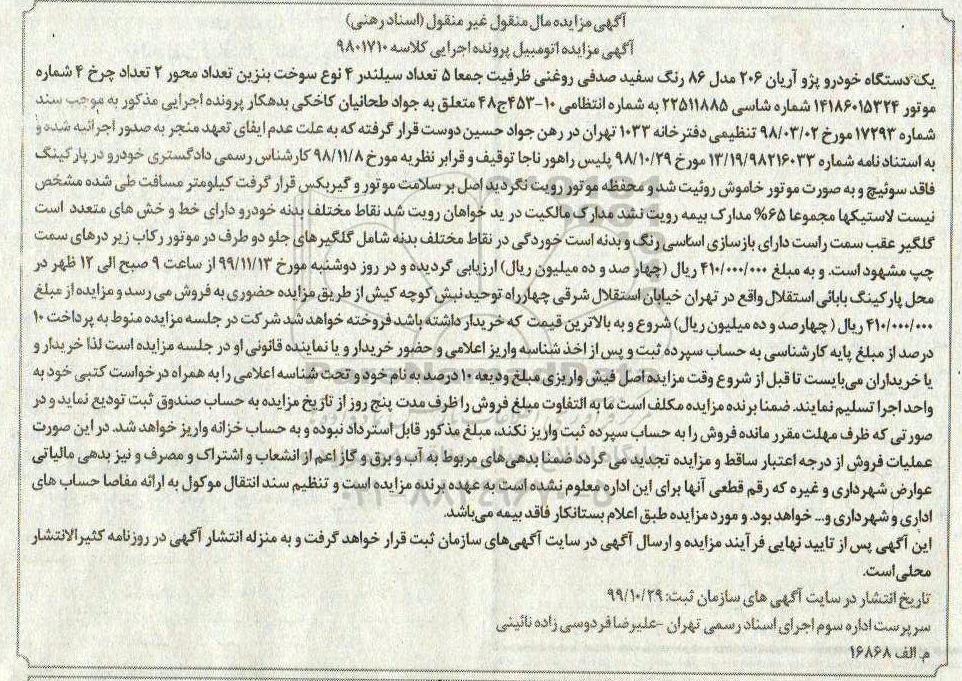 آگهی مزایده مال منقول غیر منقول (اسناد رهنی)
آگهی مزایده اتومبیل پرونده اجرایی کلاسه ۹۸۰۱۷۱۰
یک دستگاه خودرو پژو آریان ۲۰۶ مدل ۸۶ رنگ سفید صدفی روغنی ظرفیت جمعا ۵ تعداد سیلندر ۴ نوع سوخت بنزین تعداد محور ۲ تعداد چرخ ۴ شماره
موتور ۱۴۱۸۶۰۱۵۳۲۴ شماره شاسی ۲۲۵۱۱۸۸۵ به شماره انتظامی ۱۰-۴۵۳ج۴۸ متعلق به جواد طحانیان کاخکی بدهکار پرونده اجرایی مذکور به موجب سند
شماره ۱۷۲۹۳ مورخ ۹۸/۰۳/۰۲ تنظیمی دفترخانه ۱۰۳۳ تهران در رهن جواد حسین دوست قرار گرفته که به علت عدم ایفای تعهد منجر به صدور اجرائیه شده و
به استناد نامه شماره ۱۳/۱۹/۹۸۲۱۶۰۳۳ مورخ ۹۸/۱۰/۲۹ پلیس راهور ناجا توقیف و قرابر نظریه مورخ ۹۸/۱۱/۸ کارشناس رسمی دادگستری خودرو در پارکینگ
فاقد سوئیچ و به صورت موتور خاموش روئیت شد و محفظه موتور رویت نگردید اصل بر سلامت موتور و گیربکس قرار گرفت کیلومتر مسافت طی شده مشخص
نیست لاستیکها مجموعا ۶۵% مدارک بیمه رویت نشد مدارک مالکیت در ید خواهان رویت شد نقاط مختلف بدنه خودرو دارای خط و خش های متعدد است
گلگیر عقب سمت راست دارای بازسازی اساسی رنگ و بدنه است خوردگی در نقاط مختلف بدنه شامل گلگیرهای جلو دو طرف در موتور رکاب زیر درهای سمت
چپ مشهود است. و به مبلغ ۴۱۰/۰۰۰/۰۰۰ ریال (چهار صد و ده میلیون ریال) ارزیابی گردیده و در روز دوشنبه مورخ ۹۹/۱۱/۱۳ از ساعت ۹ صبح الی ۱۲ ظهر در
محل پارکینگ بابائی استقلال واقع در تهران خیابان استقلال شرقی چهارراه توحید نبش کوچه کیش از طریق مزایده حضوری به فروش می رسد و مزایده از مبلغ
۴۱۰/۰۰۰/۰۰۰ ریال (چهارصد و ده میلیون ریال) شروع و به بالاترین قیمت که خریدار داشته باشد فروخته خواهد شد شرکت در جلسه مزایده منوط به پرداخت ۱۰
درصد از مبلغ پایه کارشناسی به حساب سپرده ثبت و پس از اخذ شناسه واریز اعلامی و حضور خریدار و یا نماینده قانونی او در جلسه مزایده است لذا خریدار و
یا خریداران می‌بایست تا قبل از شروع وقت مزایده اصل فیش واریزی مبلغ ودیعه ۱۰ درصد به نام خود و تحت شناسه اعلامی را به همراه درخواست کتبی خود به
واحد اجرا تسلیم نمایند. ضمنا برنده مزایده مکلف است ما به التفاوت مبلغ فروش را ظرف مدت پنج روز از تاریخ مزایده به حساب صندوق ثبت تودیع نماید و در
صورتی که ظرف مهلت مقرر مانده فروش را به حساب سپرده ثبت واریز نکند، مبلغ مذکور قابل استرداد نبوده و به حساب خزانه واریز خواهد شد. در این صورت
عملیات فروش از درجه اعتبار ساقط و مزایده تجدید می گردد ضمنا بدهی‌های مربوط به آب و برق و گاز اعم از انشعاب و اشتراک و مصرف و نیز بدهی مالیاتی
عوارض شهرداری و غیره که رقم قطعی آنها برای این اداره معلوم نشده است به عهده برنده مزایده است و تنظیم سند انتقال موکول به ارائه مفاصا حساب های
اداری و شهرداری و... خواهد بود. و مورد مزایده طبق اعلام بستانکار فاقد بیمه می‌باشد.
این آگهی پس از تایید نهایی فرآیند مزایده و ارسال آگهی در سایت آگهی‌های سازمان ثبت قرار خواهد گرفت و به منزله انتشار آگهی در روزنامه کثیرالانتشار
محلی است.
تاریخ انتشار در سایت آگهی های سازمان ثبت: ۹۹/۱۰/۲۹
سرپرست اداره سوم اجرای اسناد رسمی تهران -علیرضا فردوسی زاده نائینی
م. الف ۱۶۸۶۸